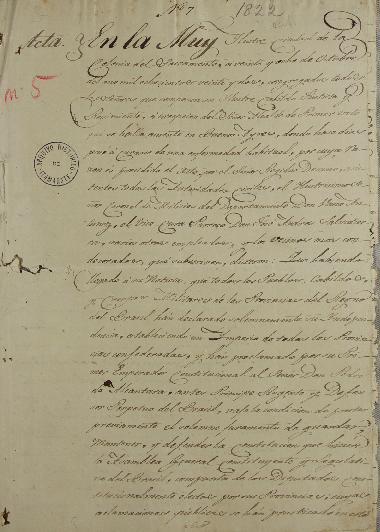 Nº 7 1822
Acta. En la Muy Ilustre ciudad de la
Colonia del Sacramento, a veinte y ocho de Octubre
del año mil ochocientos veinte y dos, congregados todos
Nº 5
los Señores que componen su Ilustre Cabildo Justicia y
Regimiento, a excepcion del Señor Alcalde de Primer voto
que se halla ausente en Buenos Ayres, donde hace dias
paso a curarse de una enfermedad habitual, por cuya
es presidido el acto, por el Señor Regidor Decano, asis
tentes todas las Autoridades civiles, el Ilustrisimo
ARCHIVO HISTORICO
DE
ITAMARATY
Coronel de Milicias del Departamento Don
el Vice Cura Parroco Don José
varios otros empleados, y los vecinos mas con
decorados, que subscriven, dixeron: Que habiendo
llegado a su Noticia, que todos los Pueblos, Cabildos
y Cuerpos Militares de las Provincias del Reyno
del Brasil han declarado solemnemente su Indepen
dencia, estableciendo un Imperio de todas las Provin
cias confederadas, y han proclamado por su Pri
mer Emperador Constitucional al Señor Don Pedro
de Alcantara, antes Principe Regente y Defen
sor Perpetuo del Brasil, vajo la condicion de prestar
previamente el solemne juramento de guardar,
Mantener, y defender la Constitucion que hiciere
la Asamblea General Constituyente y Legislati
va del Brasil, compuesta de los Diputados cons
titucionalmente electos por sus Provincias; cuyas
aclamaciones publicas se han practicado en